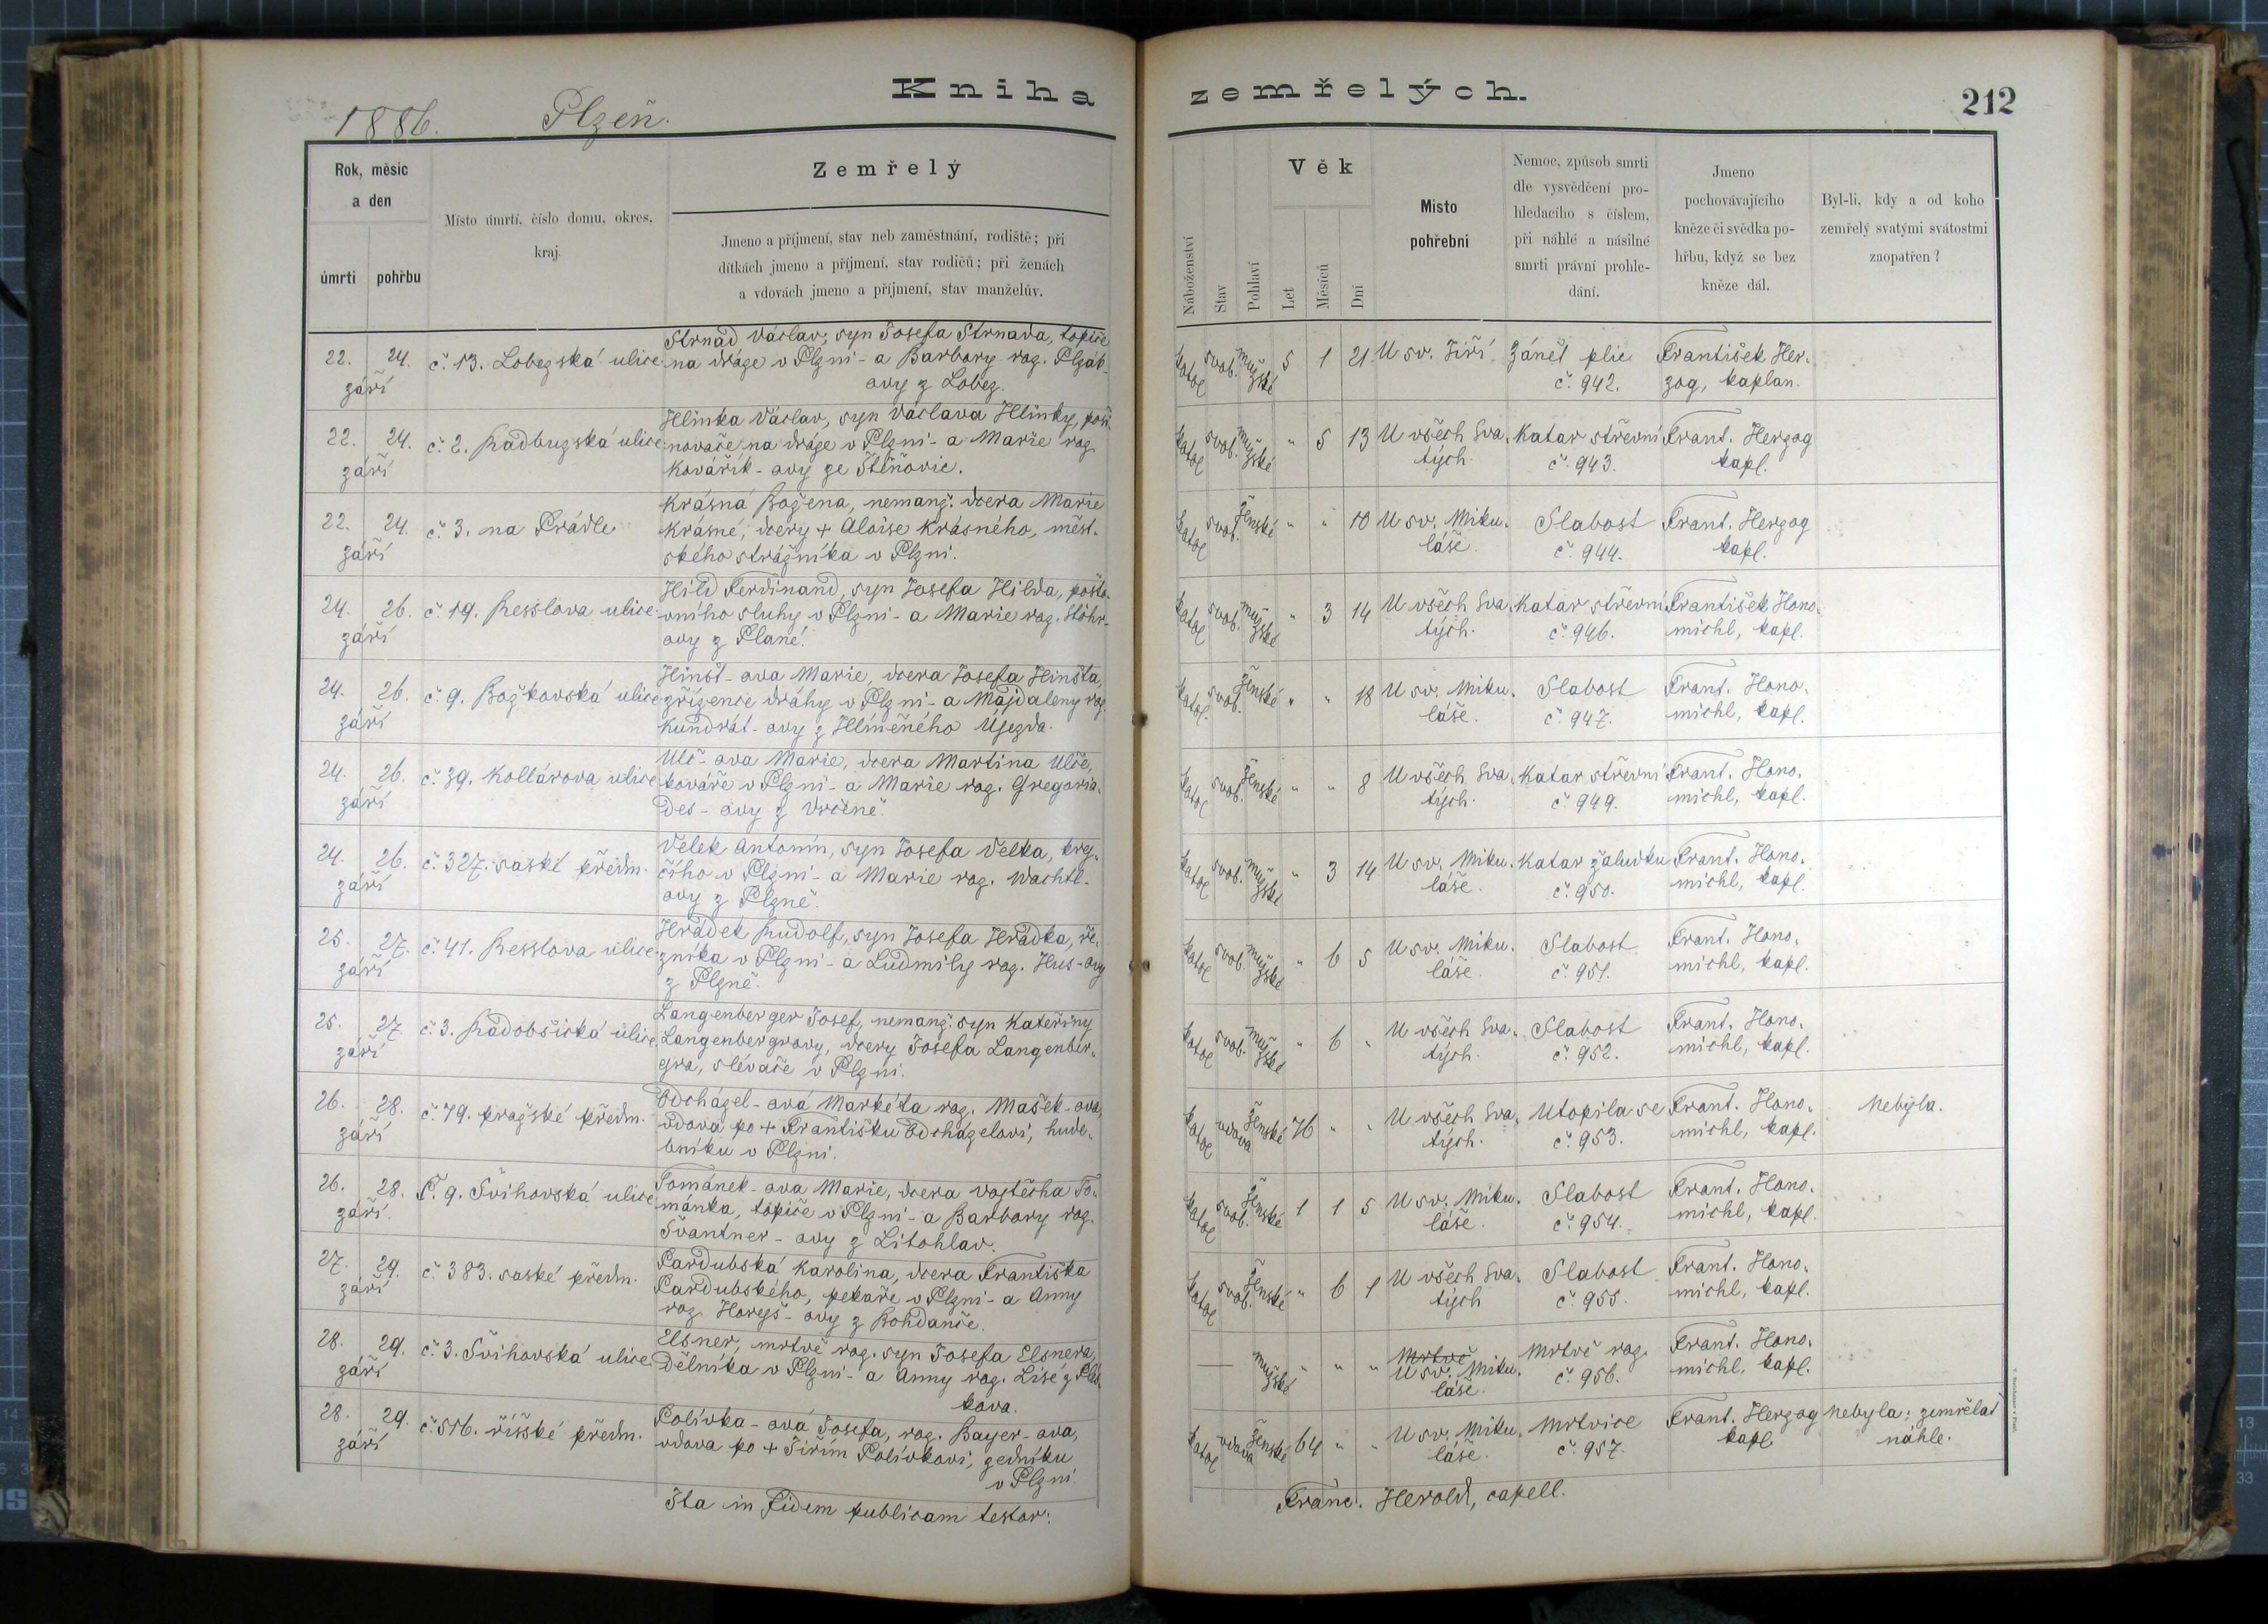 Kniha zemřelých.
212
1886. Plzeň.
Rok, měsíc
a den
úmrtí
pohřbu
Místo úmrtí, číslo domu, okres,
kraj.
Zemřelý
Jmeno a příjmení, stav neb zaměstnání, rodiště; při
dítkách jmeno a příjmení, stav rodičů; při ženách
a vdovách jmeno a příjmení, stav manželův.
Náboženství
Stav
Pohlaví
Věk
Let
Měsíců
Dní
Místo
pohřební
Nemoc, způsob smrti
dle vysvědčení pro-
hledacího s číslem,
při náhlé a násilné
smrti právní prohle-
dání.
Jmeno
pochovávajícího
kněze či svědka po-
hřbu, když se bez
kněze dál.
Byl-li, kdy a od koho
zemřelý svatými svátostmi
zaopatřen?
22. 24.
září
č. 13. Lobezská ulice
Strnad Václav, syn Josefa Strnada, topiče
na dráze v Plzni - a Barbory roz. Plzák-
ovy z Lobez.
katol svob. mužské 5 1 21
U sv. Jiří
Zánět plic
č. 942.
František Her-
zog, kaplan.
22. 24.
září
č. 2. Radbuzská ulice
Hlinka Václav, syn Václava Hlinky, poši-
novače na dráze v Plzni - a Marie roz
Kovářík-ovy ze Štěnovic.
katol svob. mužské " 5 13
U všech Sva-
tých.
Katar střevní
č. 943.
Frant. Herzog
kapl.
22. 24.
září
č. 3. na Prádle
Krásná Božena, nemanž. dcera Marie
Krásné, dcery + Aloise Krásného, měst-
ského strážníka v Plzni.
katol svob. ženské " " 10
U sv. Miku-
láše.
Slabost
č. 944.
Frant. Herzog
kapl.
24. 26.
září
č. 19. Resslova ulice
Hild Ferdinand, syn Josefa Hilda, pošto-
vního sluhy v Plzni - a Marie roz. Stöhr-
ovy z Plané.
katol svob. mužské " 3 14
U všech Sva-
tých.
Katar střevní
č. 946.
František Hono-
michl, kapl.
24. 26.
září
č. 9. Božkovská ulice
Hinšt-ova Marie, dcera Josefa Hinšta,
zřízence dráhy v Plzni - a Majdaleny roz.
Kundrát-ovy z Hliněného Újezda.
katol. svob. ženské " " 18
U sv. Miku-
láše.
Slabost
č. 947.
Frant. Hono-
michl, kapl.
24. 26.
září
č. 39. Kollárova ulice
Ulč-ova Marie, dcera Martina Ulče,
kováře v Plzni - a Marie roz. Gregoria-
des-ovy z Vrčeně.
katol svob. ženské " " 8
U všech Sva-
tých.
Katar střevní
č. 949.
Frant. Hono-
michl, kapl.
24. 26.
září
č. 327. saské předm.
Velek Antonín, syn Josefa Velka, krej-
čího v Plzni - a Marie roz. Wachtl-
ovy z Plzně.
katol svob. mužské " 3 14
U sv. Miku-
láše.
Katar žaludku
č. 950.
Frant. Hono-
michl, kapl.
25. 27.
září
č. 41. Resslova ulice
Hrádek Rudolf, syn Josefa Hrádka, ře-
zníka v Plzni - a Ludmily roz. Hus-ovy
z Plzně.
katol svob. mužské " 6 5
U sv. Miku-
láše.
Slabost
č. 951.
Frant. Hono-
michl, kapl.
25. 27
září
č. 3. Radobčická ulice
Langenberger Josef, nemanž. syn Kateřiny
Langenbergrovy, dcery Josefa Langenber-
gra, slévače v Plzni.
katol svob. mužské " 6 "
U všech Sva-
tých.
Slabost
č. 952.
Frant. Hono-
michl, kapl.
26. 28.
září
č. 79. pražské předm.
Odcházel-ová Markéta roz. Mašek-ova,
vdova po + Františku Odcházelovi, hude-
bníku v Plzni.
katol vdova ženské 76 " "
U všech Sva-
tých.
Utopila se
č. 953.
Frant. Hono-
michl, kapl.
Nebyla.
26. 28.
září.
Č. 9. Švihovská ulice
Tománek-ova Marie, dcera Vojtěcha To-
mánka, topiče v Plzni - a Barbory roz.
Švantner-ovy z Litohlav.
katol svob. ženské 1 1 5
U sv. Miku-
láše.
Slabost
č. 954.
Frant. Hono-
michl, kapl.
27. 29.
září
č. 383. saské předm.
Pardubská Karolina, dcera Františka
Pardubského, pekaře v Plzni - a Anny
roz Horejš-ovy z Bohdanče.
katol svob. ženské " 6 1
U všech Sva-
tých
Slabost
č. 955.
Frant. Hono-
michl, kapl.
28. 29.
září
č. 3. Švihovská ulice
Elsner, mrtvě roz. syn Josefa Elsnera,
dělníka v Plzni - a Anny roz. Lisé z
kova.
— mužské " " "
Mrtvě
U sv. Miku-
láše.
Mrtvě roz.
č. 956.
Frant. Hono-
michl, kapl.
28. 29.
září
č. 516. říšské předm.
Polívka-ová Josefa, roz. Bayer-ova,
vdova po + Jiřím Polívkovi, zedníku
v Plzni.
katol vdova ženské 64 " "
U sv. Miku-
láše.
Mrtvice
č. 957.
Frant. Herzog
kapl
Nebyla; zemřelať
náhle.
Ita in fidem publicam testor:
Franc. Herold, capell.